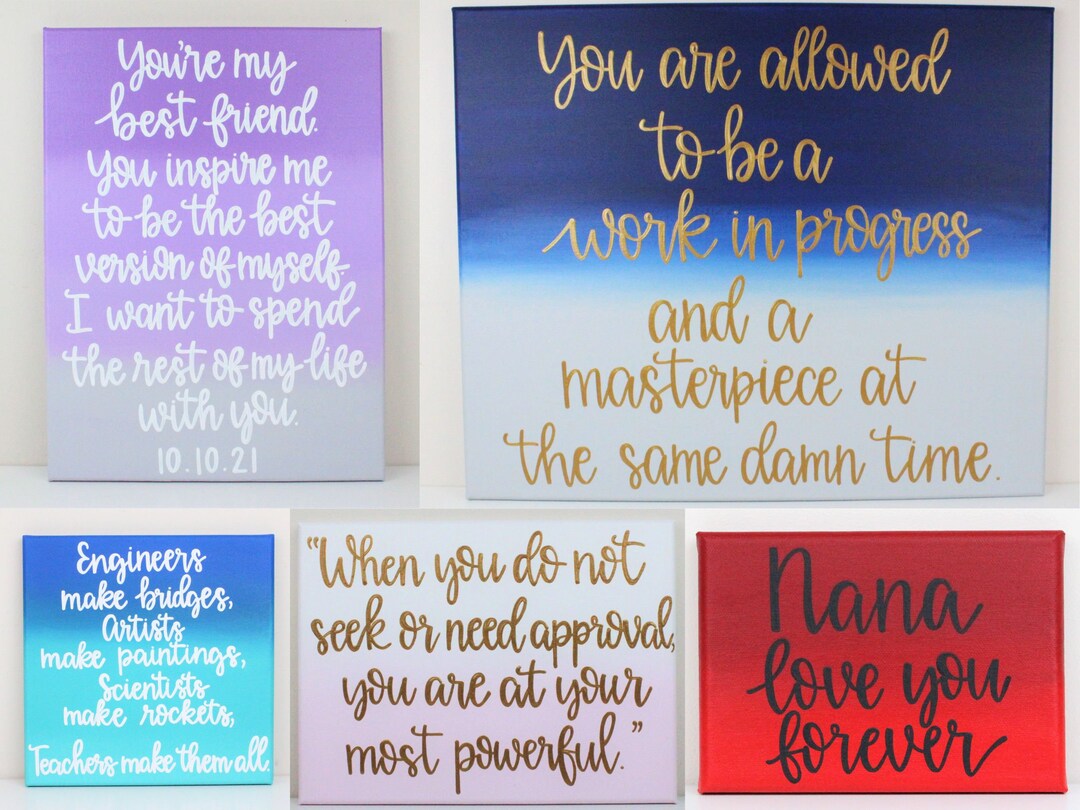 You're my
best friend.
You inspire me
to be the best
version of myself.
I want to spend
the rest of my life
with you.
10.10.21
You are allowed
to be a
work in progress
and a
masterpiece at
the same damn time.
Engineers
make bridges,
Artists
make paintings,
Scientists
make rockets,
Teachers make them all.
"When you do not
seek or need approval,
you are at your
most powerful."
Nana
love you
forever